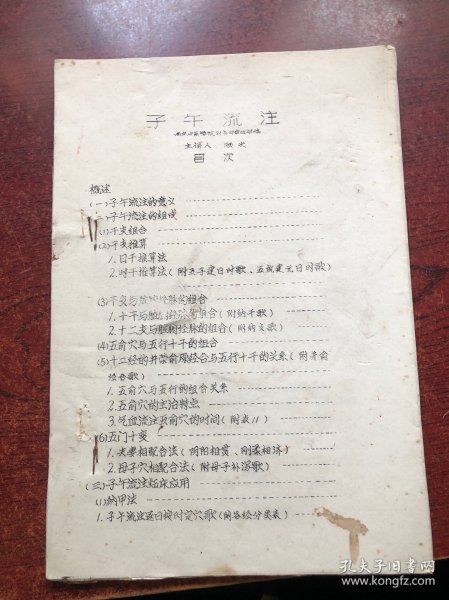 子午流注
主讲人
目次
概述
(一)子午流注的意义
(二)子午流注的组成
(1)干支组合
(2)干支推算
1.日干推算法
2.时干推算法(附五子建日时歌、五虎建元日时歌)
(3)干支与脏腑经脉的组合
1.十干与脏腑经脉的组合(附纳干歌)
2.十二支与脏腑经脉的组合(附纳支歌)
(4)五俞穴与五行十干的组合
(5)十二经的井荥俞原经合与五行十干的关系(附井俞
经合歌)
1.五俞穴与五行的组合关系
2.五俞穴的主治
3.气血流注五俞穴的时间(附表11)
(6)五门十变
1.夫妻相配合法(阴阳相贯、刚柔相济)
2.母子穴相配合法(附母子补泻歌)
(三)子午流注临床应用
(1)纳甲法
1.子午流注逐日按时定穴歌(附各经分类表)
孔夫子旧书网